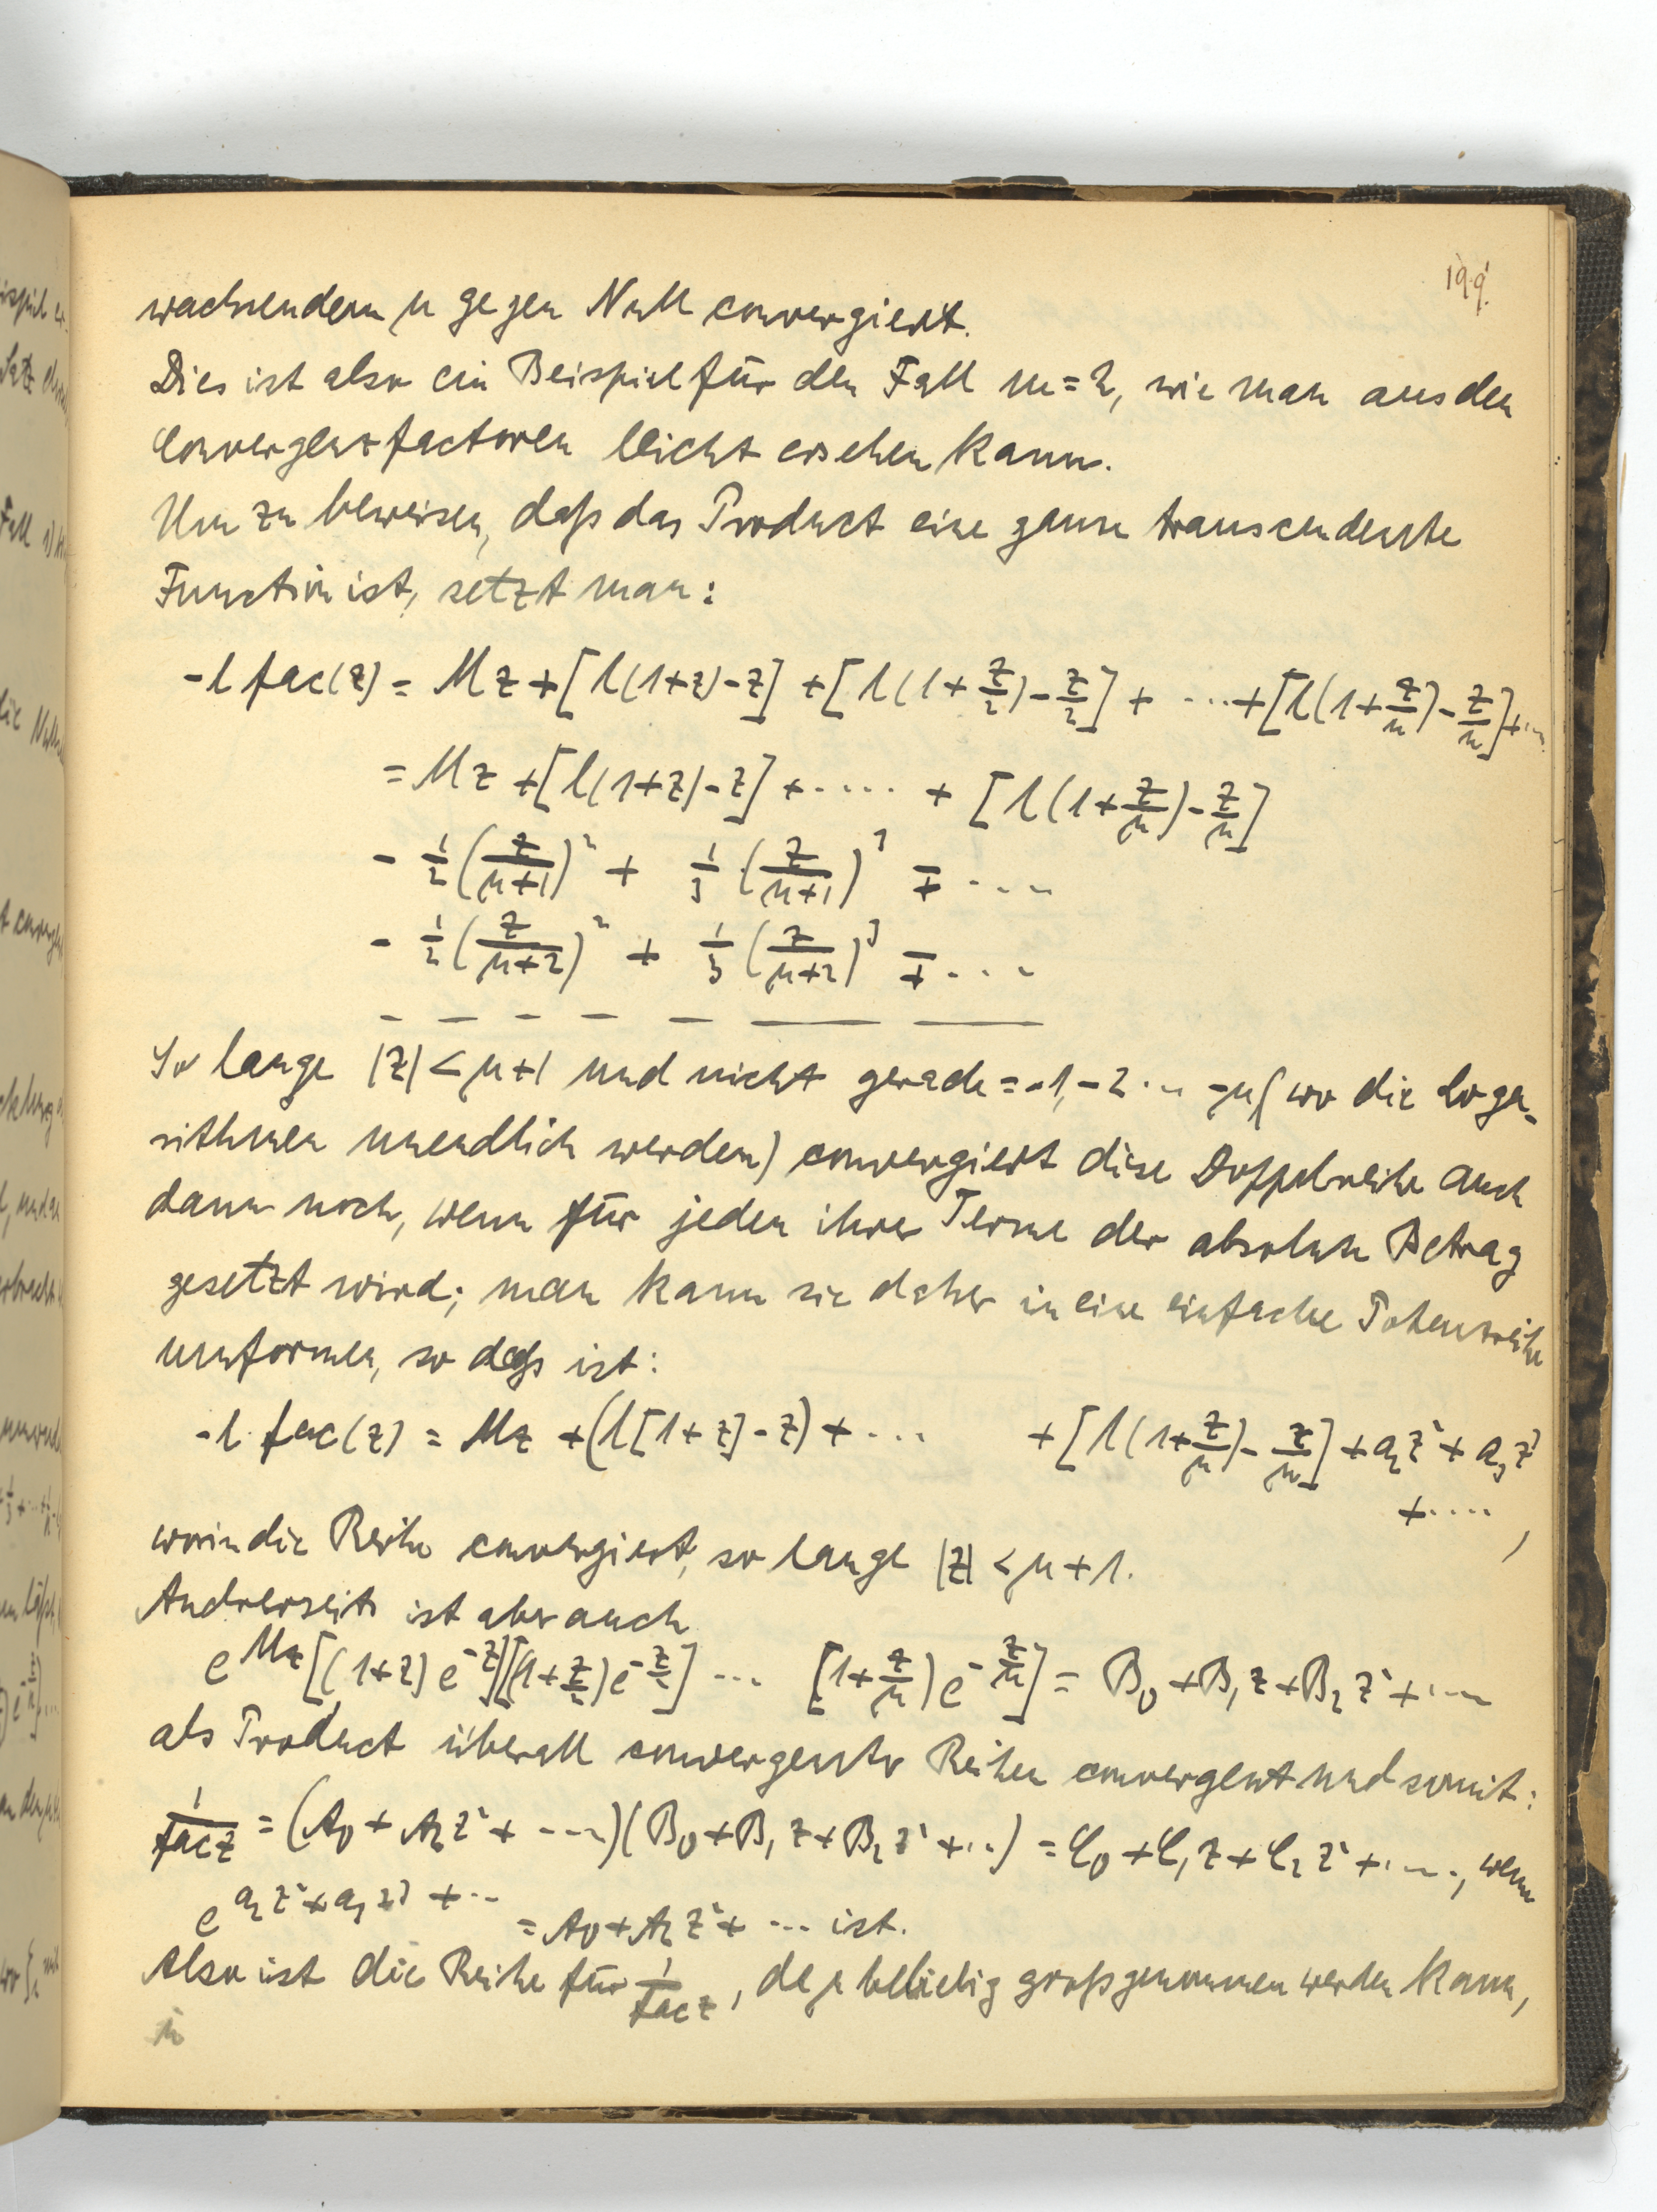 199.
wachsendem μ gegen Null convergiert.
Dies ist also ein Beispiel für den Fall m=2, wie man aus den
Convergenzfactoren leicht ersehen kann.
Um zu beweisen, daß das Product eine ganze transcendente
Function ist, setzt man:
-l fac(z) = Mz + [l(1+z)-z] + [l(1+z/2)-z/2] + ... + [l(1+z/n)-z/n]+...
= Mz + [l(1+z)-z] + ..... + [l(1+z/μ)-z/μ]
- 1/2 (z/(μ+1))² + 1/3 (z/(μ+1))³ ∓ ....
- 1/2 (z/(μ+2))² + 1/3 (z/(μ+2))³ ∓ ....
– – – – – — —
So lange |z| < μ+1 und nicht gerade = -1, -2 ... -μ (wo die Loga-
rithmen unendlich werden) convergiert diese Doppelreihe auch
dann noch, wenn für jeden ihrer Terme der absolute Betrag
gesetzt wird; man kann sie daher in eine einfache Potenzreihe
umformen, so daß ist:
-l fac(z) = Mz + (l[1+z]-z) + ... + [l(1+z/μ)-z/μ] + a₂z² + a₃z³
+ .... ,
worin die Reihe convergiert, so lange |z| < μ+1.
Andrerseits ist aber auch
e^{Mz} [(1+z)e^{-z}][(1+z/2)e^{-z/2}] ... [1+z/μ)e^{-z/μ}] = B₀+B₁z+B₂z²+....
als Product überall convergenter Reihen convergent und somit:
1/fac z = (A₀+A₂z²+ ....)(B₀+B₁z+B₂z²+..) = C₀+C₁z+C₂z²+...., wenn
e^{a₂z²+a₃z³+...} = A₀+A₂z²+ ... ist.
Also ist die Reihe für 1/fac z, da μ beliebig groß genommen werden kann,